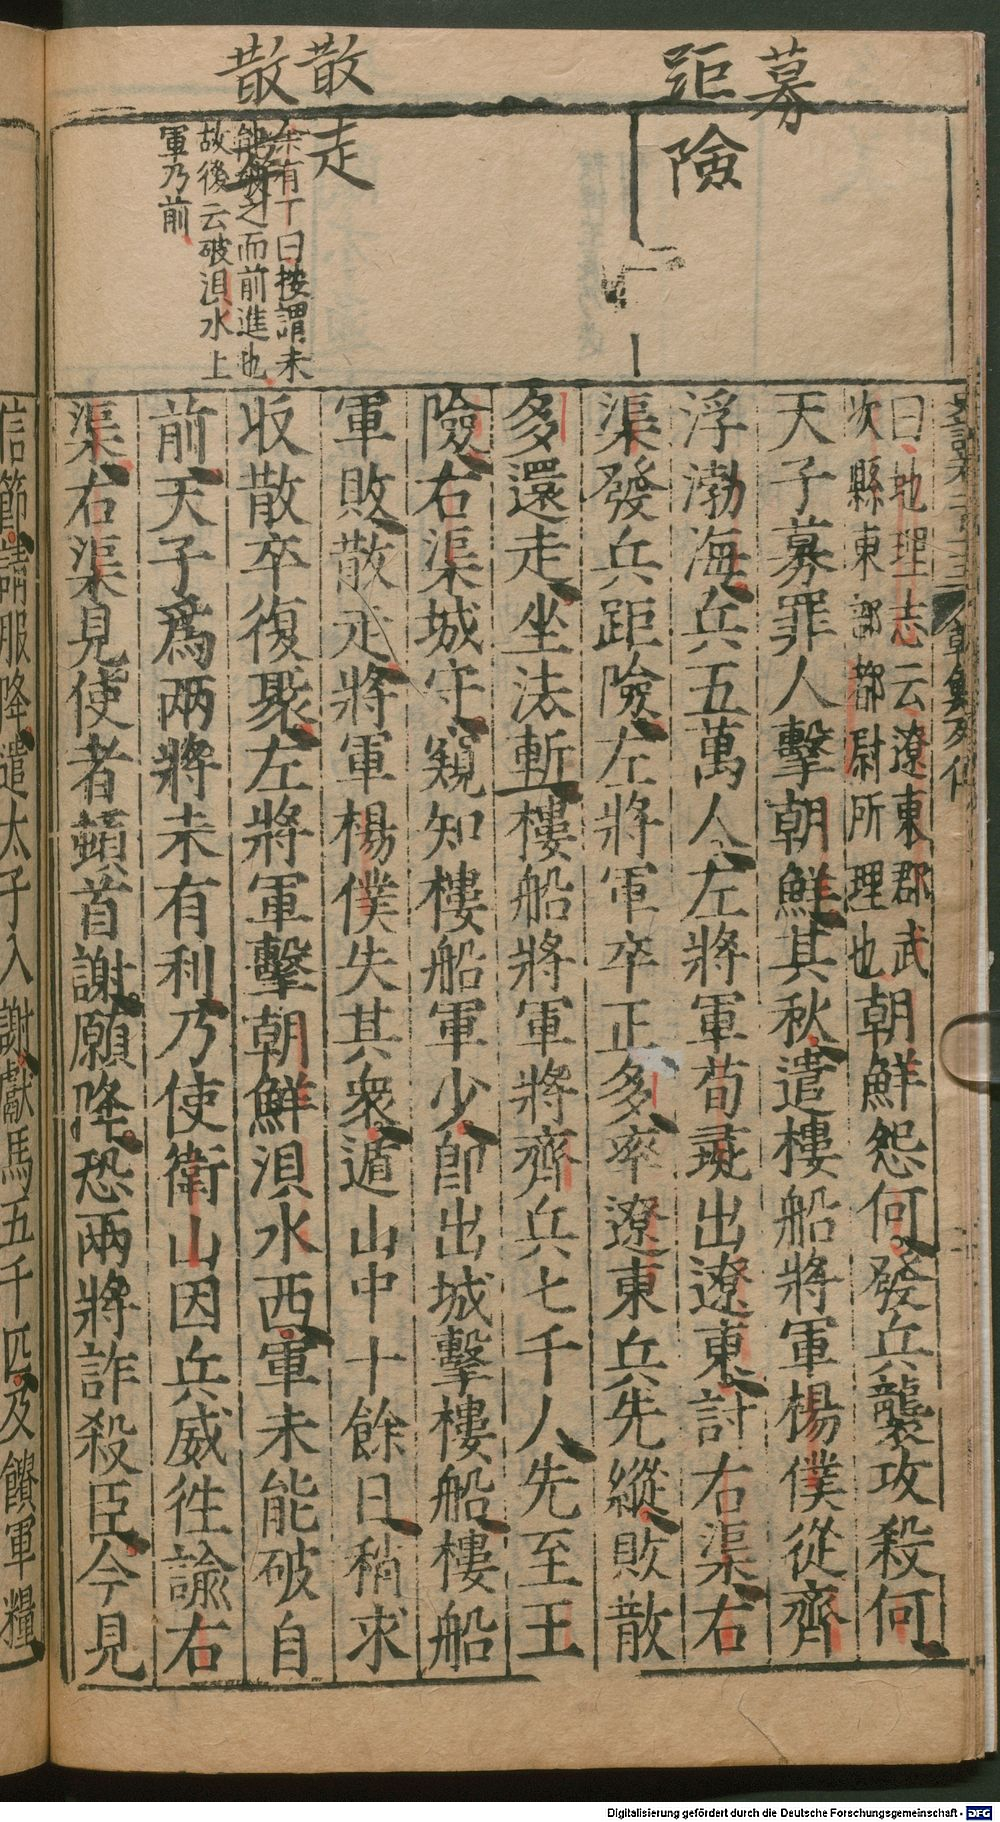 募
距險
散走
散卒
余有丁曰按謂未
能破之而前進也
故後云破浿水上
軍乃前
曰地理志云遼東郡武
次縣東部都尉所理也
朝鮮怨何發兵襲攻殺何
天子募罪人擊朝鮮其秋遣樓船將軍楊僕從齊
浮渤海兵五萬人左將軍荀彘出遼東討右渠右
渠發兵距險左將軍卒正多率遼東兵先縱敗散
多還走坐法斬樓船將軍將齊兵七千人先至王
險右渠城守窺知樓船軍少卽出城擊樓船樓船
軍敗散走將軍楊僕失其衆遁山中十餘日稍求
收散卒復聚左將軍擊朝鮮浿水西軍未能破自
前天子爲兩將未有利乃使衛山因兵威徃諭右
渠右渠見使者頓首謝願降恐兩將詐殺臣今見
信節請服降遣太子入謝獻馬五千匹及饋軍糧
Digitalisierung gefördert durch die Deutsche Forschungsgemeinschaft - DFG